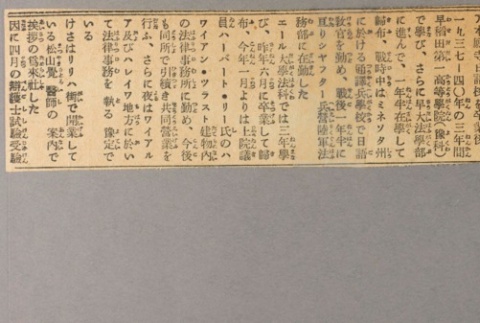 一九三七-四〇年の三年間
早稻田第一高等學院(豫科)
で學び、さらに早大法學部
に進んで、一年半在學して
歸布、戰時中はミネソタ州
に於ける通譯兵學校で日語
敎官を勤め、戰後一年半に
亘りシヤフター兵營陸軍法
務部に在勤した
エール大學法科では三年學
び、昨年六月に卒業して歸
布、今年一月よりは上院議
員ハーバート・リー氏のハ
ワイアン・ツラスト建物內
の法律事務所に勤め、今後
も同所で引續き共同營業を
行ふ、さらに夜はワイアル
ア及びハレイワ地方に於い
て法律事務を執る豫定で
いる
けさはリリハ街で開業して
いる松山覺醫師の案內で
挨拶の爲來社した
因に四月の辯護士試驗受驗